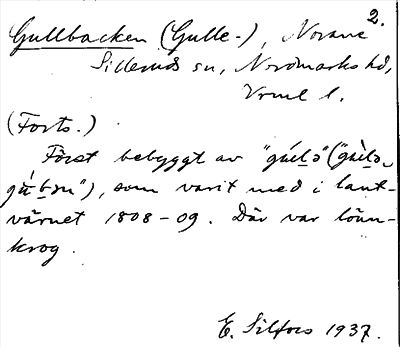 2.
Gullbacken (Gulle-), Norane
Silleruds sn, Nordmarks hd,
Vrml l.
(Forts.)
Först bebyggt av "
som varit med i lant-
värnet 1808-09. Där var lönn-
krog.
E. Silfors 1937.